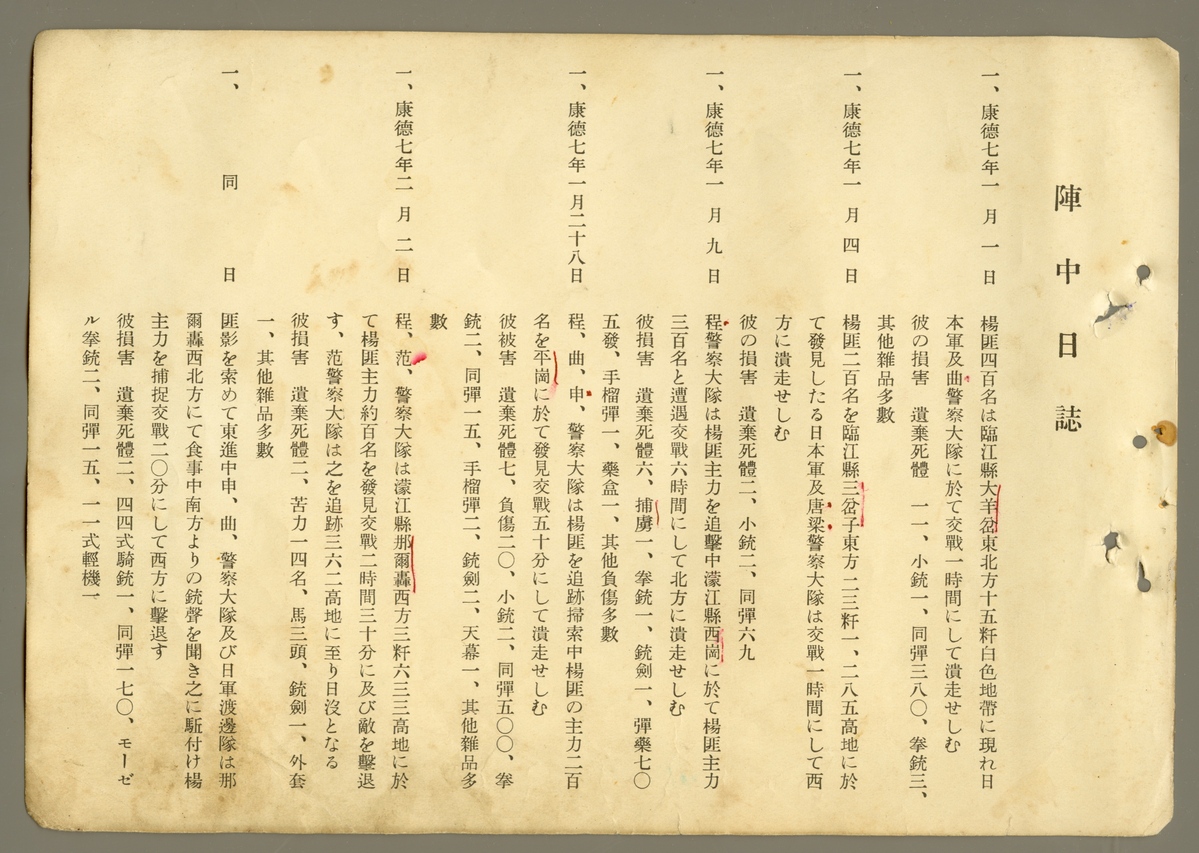 陣中日誌
一、康德七年一月一日　楊匪四百名は臨江縣大羊岔東北方十五粁白色地帶に現れ日
本軍及曲警察大隊に於て交戰一時間にして潰走せしむ
彼の損害　遺棄死體一一、小銃一、同彈三八〇、拳銃三、
其他雜品多數
一、康德七年一月四日　楊匪二百名を臨江縣三岔子東方二三粁一、二八五高地に於
て發見したる日本軍及唐梁警察大隊は交戰一時間にして西
方に潰走せしむ
彼の損害　遺棄死體二、小銃二、同彈六九
一、康德七年一月九日　程警察大隊は楊匪主力を追擊中濛江縣西崗に於て楊匪主力
三百名と遭遇交戰六時間にして北方に潰走せしむ
彼損害　遺棄死體六、捕虜一、拳銃一、銃劍一、彈藥七〇
五發、手榴彈一、藥盒一、其他負傷多數
一、康德七年一月二十八日　程、曲、申、警察大隊は楊匪を追跡掃索中楊匪の主力二百
名を平崗に於て發見交戰五十分にして潰走せしむ
彼被害　遺棄死體七、負傷二〇、小銃二、同彈五〇〇、拳
銃二、同彈一五、手榴彈二、銃劍二、天幕一、其他雜品多
數
一、康德七年二月二日　程、范、警察大隊は濛江縣那爾轟西方三粁六三三高地に於
て楊匪主力約百名を發見交戰二時間三十分に及び敵を擊退
す、范警察大隊は之を追跡三六二高地に至り日沒となる
彼損害　遺棄死體二、苦力一四名、馬三頭、銃劍一、外套
一、其他雜品多數
一、同日　匪影を索めて東進中申、曲、警察大隊及び日軍渡邊隊は那
爾轟西北方にて食事中南方よりの銃聲を聞き之に駈付け楊
主力を捕捉交戰二〇分にして西方に擊退す
彼損害　遺棄死體二、四四式騎銃一、同彈一七〇、モーゼ
ル拳銃二、同彈一五、一一式輕機一